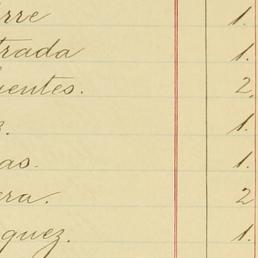 rre 1.
trada 1.
uentes. 2.
z. 1.
as. 1.
era. 2
quez. 1.